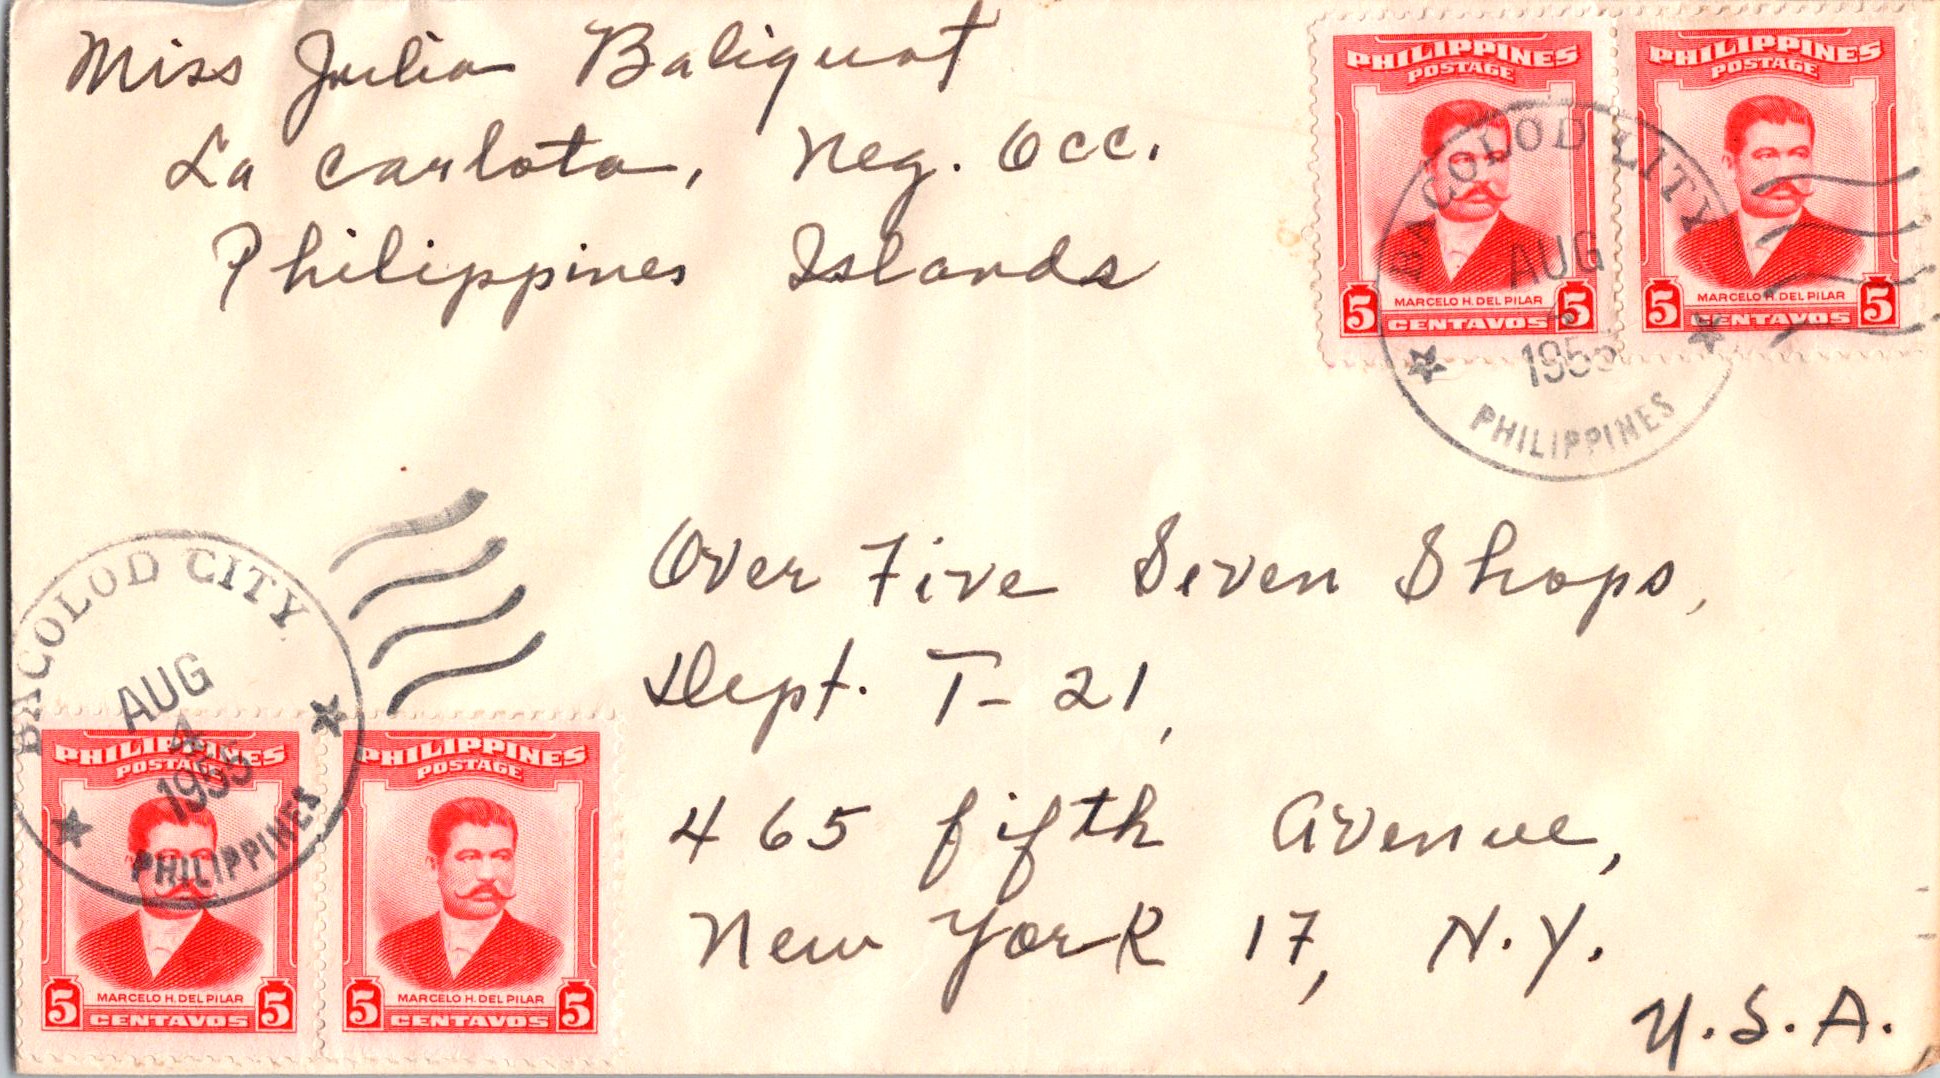 Miss Julia Baliguat
La Carlota, Neg. Occ.
Philippines Islands
PHILIPPINES
POSTAGE
MARCELO H. DEL PILAR
5 CENTAVOS 5
PHILIPPINES
POSTAGE
MARCELO H. DEL PILAR
5 CENTAVOS 5
BACOLOD CITY
AUG
4
1955
PHILIPPINES
Over Five Seven Shops,
Dept. T-21,
465 fifth Avenue,
New York 17, N.Y.
U.S.A.
BACOLOD CITY
AUG
4
1955
PHILIPPINES
PHILIPPINES
POSTAGE
MARCELO H. DEL PILAR
5 CENTAVOS 5
PHILIPPINES
POSTAGE
MARCELO H. DEL PILAR
5 CENTAVOS 5